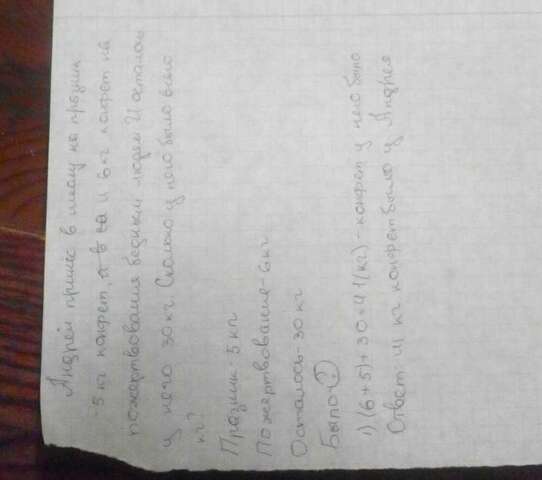 Андрей принёс в школу на празник
5 кг конфет, и 6 кг конфет на
пожертвования бедным людям И осталось
у него 30 кг. Сколько у него было всего
кг?
Празник- 5 кг
Пожертвование- 6 кг
Осталось- 30 кг
Было- ?
1) (6+5)+30=41(кг) – конфет у него было
Ответ: 41 кг конфет было у Андрея